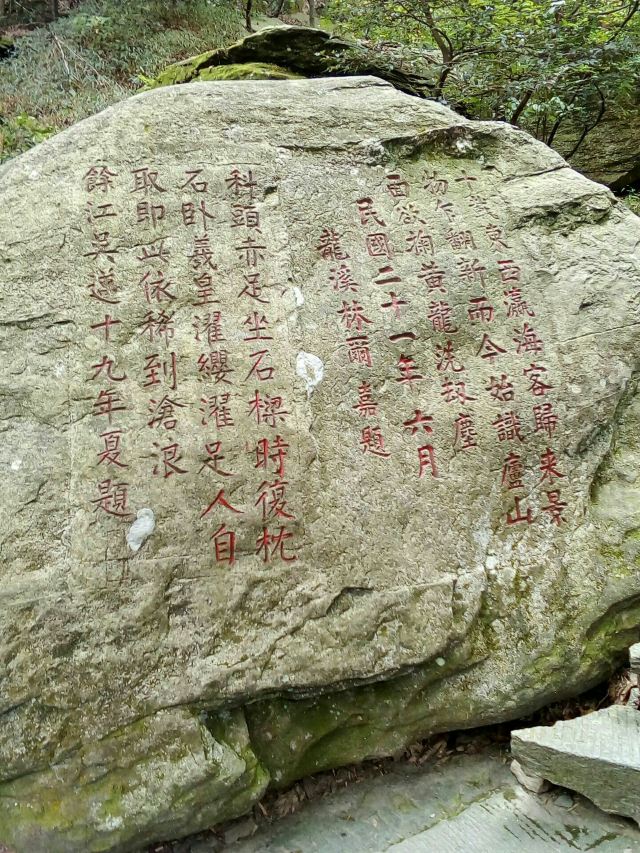 十載東西瀛海客歸來景
物乍翻新而今始識廬山
面欲掬黃龍洗刼塵
民國二十一年六月
龍溪林爾嘉題
科頭赤足坐石樑時復枕
石卧羲皇濯纓濯足人自
取即此依稀到滄浪
餘江吳邁十九年夏題